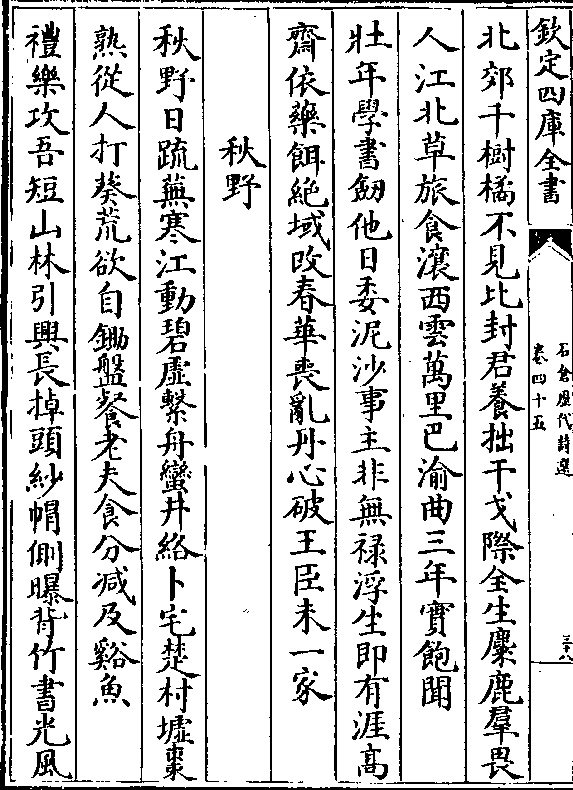 欽定四庫全書
石倉歷代詩選
卷四十五
三十八
北郊千樹橘不見比封君養拙干戈際全生麋鹿羣畏
人江北草旅食瀼西雲萬里巴渝曲三年實飽聞
壯年學書劒他日委泥沙事主非無禄浮生即有涯高
齋依藥餌絶域改春華喪亂丹心破王臣未一家
秋野
秋野日疏蕪寒江動碧虛繫舟蠻井絡卜宅楚村墟棗
熟從人打葵荒欲自鋤盤餐老夫食分减及谿魚
禮樂攻吾短山林引興長掉頭紗帽側曝背竹書光風